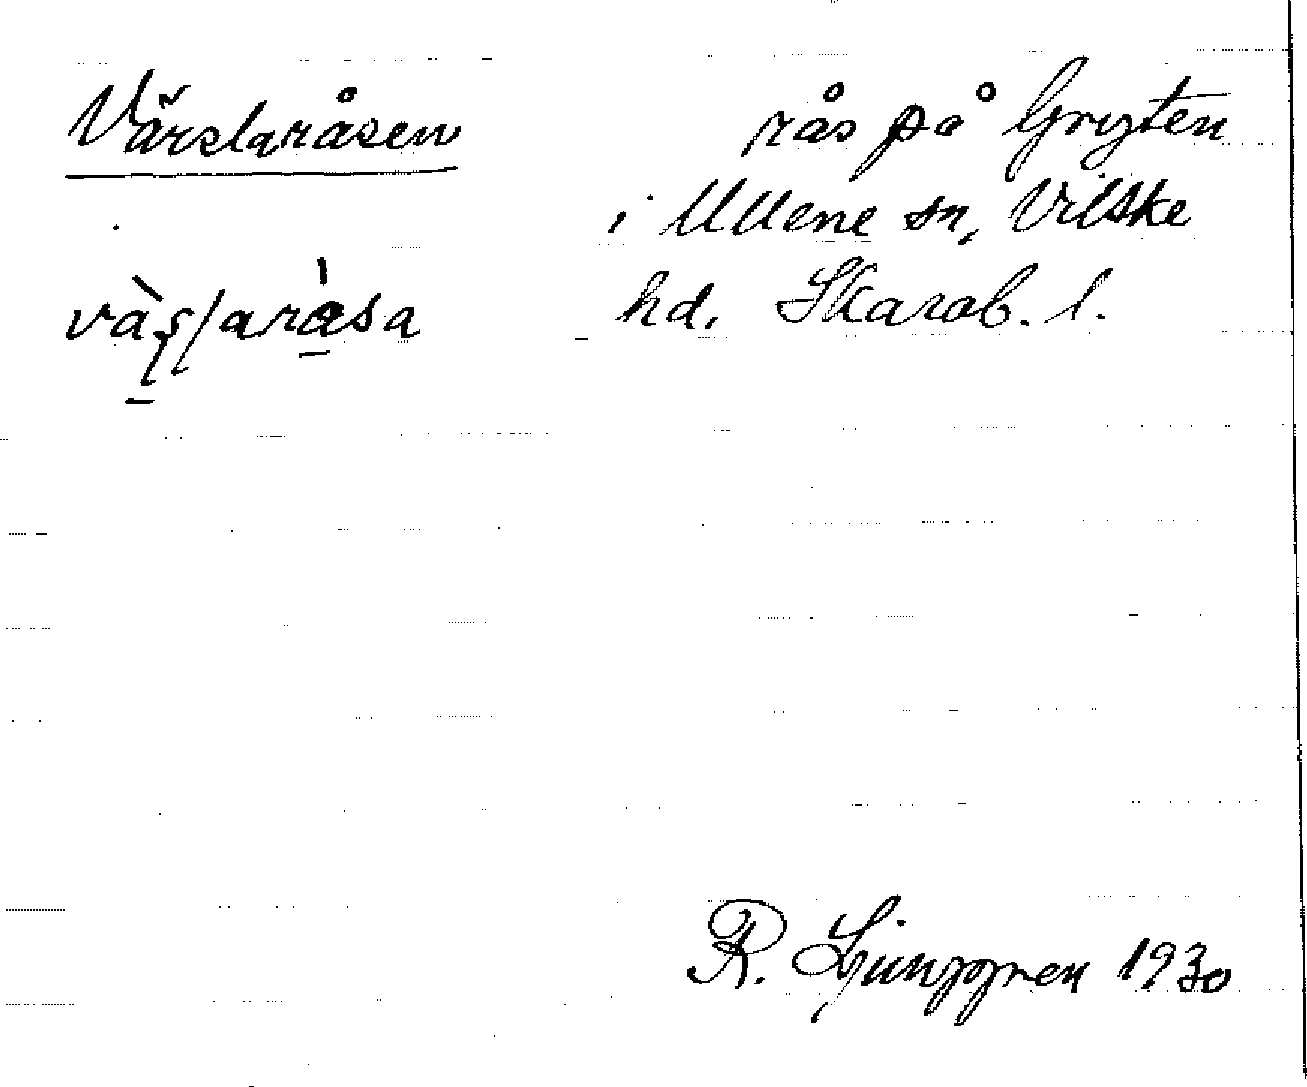 Värslaråsen
rås på Gryten
i Ullene sn, Vilske
hd. Skarab. l.
R. Ljunggren 1930